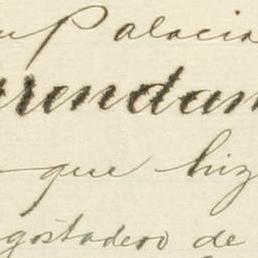 Palacio
rrendam
que hiz
gostadero de